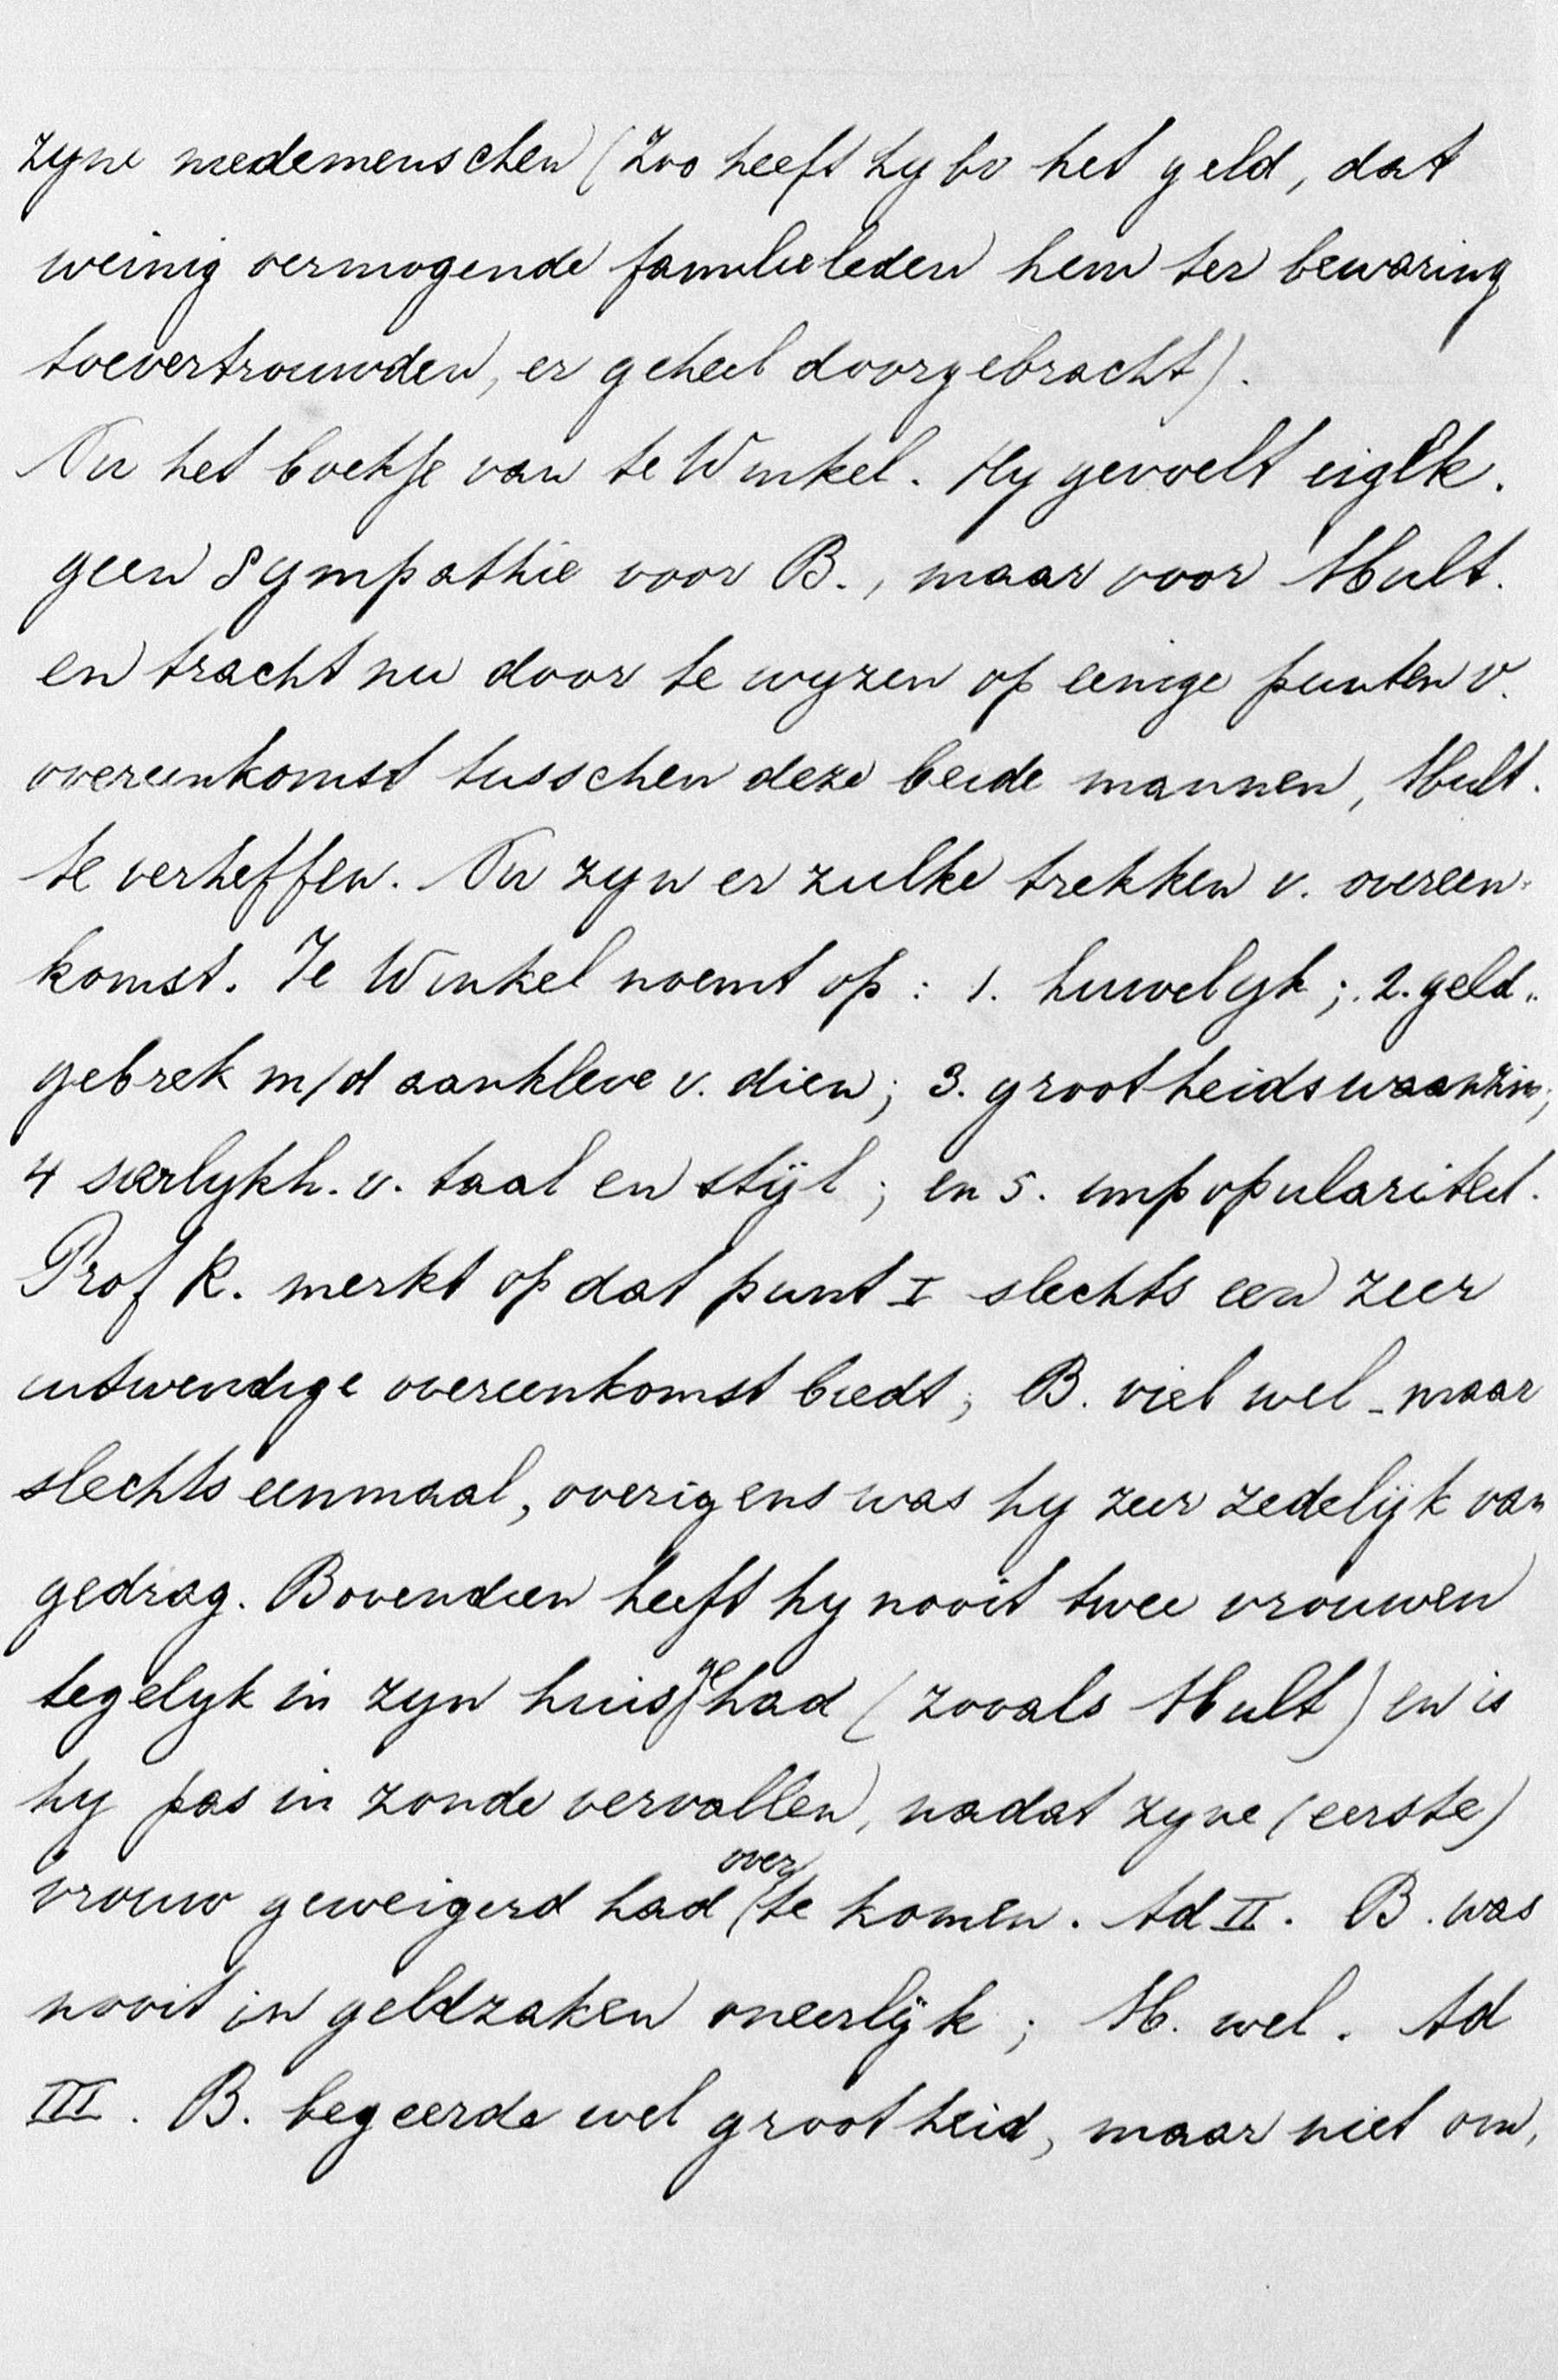 zyne medemenschen (Zoo heeft hy bv het geld, dat
weinig vermogende familieleden hem ter bewaring
toevertrouwden, er geheel doorgebracht).
Nu het boekje van te Winkel. Hy gevoelt eiglk.
geen sympathie voor B., maar voor Mult.
en tracht nu door te wyzen op eenige punten v.
overeenkomst tusschen deze beide mannen, Mult.
te verheffen. Nu zyn er zulke trekken v. overeen-
komst. Te Winkel noemt op: 1. huwelyk; 2. geld-
gebrek m/d aankleve v. dien; 3. grootheidswaanzin;
4 sierlykh. v. taal en stijl; en 5. impopulariteit.
Prof K. merkt op dat punt I slechts een zeer
uitwendige overeenkomst biedt; B. viel wel - maar
slechts eenmaal, overigens was hy zeer zedelijk van
gedrag. Bovendien heeft hy nooit twee vrouwen
tegelyk in zyn huis gehad (zooals Mult) en is
hy pas in zonde vervallen, nadat zyne (eerste)
vrouw geweigerd had over te komen. Ad II. B. was
nooit in geldzaken oneerlijk; M. wel. Ad
III. B. begeerde wel grootheid, maar niet om,